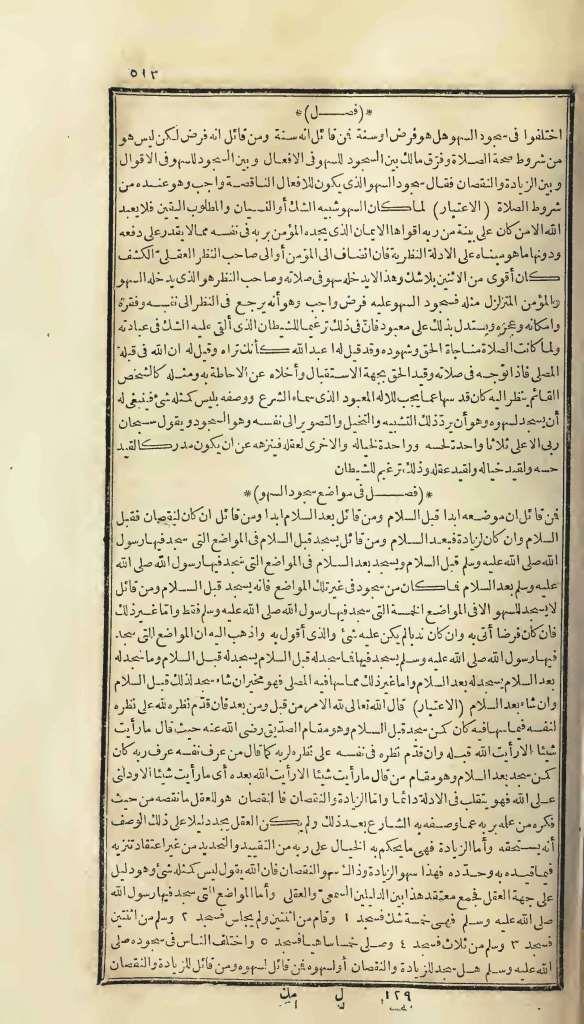 ٥١٣
*(فصــل)*
اختلفوا فى سجود السهو هل هو فرض أو سنة فمن قائل انه سنة ومن قائل انه فرض لكن ليس هو
من شروط صحة الصلاة وفرق مالك بين السجود للسهو فى الافعال وبين السجود للسهو فى الاقوال
وبين الزيادة والنقصان فقال سجود السهو الذى يكون للافعال الناقصة واجب وهو عنده من
شروط الصلاة (الاعتبار) لما كان السهو شبيه الشك أو النسيان والمطلوب اليقين فلا يعبد
الله الا من كان على بينة من ربه اقواها الايمان الذى يجده المؤمن بربه فى نفسه مما لا يقدر على دفعه
ودونها ما هو مبناه على الادلة النظرية فان انضاف الى المؤمن أو الى صاحب النظر العقلى الكشف
كان أقوى من الاثنين بلا شك وهذا لا يدخله سهو فى صلاته وصاحب النظر هو الذى يدخله السهو
والمؤمن المتزلزل مثله فسجود السهو عليه فرض واجب وهو أنه يرجع فى النظر الى نفسه وفقره
وامكانه وعجزه ويستدل بذلك على معبوده فان فى ذلك ترغيما للشيطان الذى ألقى عليه الشك فى عبادته
ولما كانت الصلاة مناجاة الحق وشهوده وقد قيل له اعبد الله كأنك تراه وقيل له ان الله فى قبلة
المصلى فاذا توجه فى صلاته وقيد الحق بجهة الاستقبال وأخلاه عن الاحاطة به ومثله كالشخص
القائم ينظر اليه كان قد سها عما يجب للاله المعبود الذى سماه الشرع ووصفه بليس كمثله شئ فينبغى له
أن يسجد لسهوه وهو أن يرد ذلك التشبيه والتخيل والتصوير الى نفسه وهو السجود ويقول سبحان
ربى الاعلى ثلاثا واحدة لحسه وواحدة لخياله والاخرى لعقله فينزهه عن ان يكون مدرك القيد
حسه ولقيد خياله ولقيد عقله وذلك ترغيم للشيطان
*(فصــل فى مواضع سجود السهو)*
فمن قائل ان موضعه ابدا قبل السلام ومن قائل بعد السلام ابدا ومن قائل ان كان لنقصان فقبل
السلام وان كان لزيادة فبعد السلام ومن قائل يسجد قبل السلام فى المواضع التى سجد فيها رسول
الله صلى الله عليه وسلم قبل السلام ويسجد بعد السلام فى المواضع التى سجد فيها رسول الله صلى الله
عليه وسلم بعد السلام فما كان من سجود فى غير تلك المواضع فانه يسجد قبل السلام ومن قائل
لا يسجد للسهو الا فى المواضع الخمسة التى سجد فيها رسول الله صلى الله عليه وسلم فقط واما غير ذلك
فان كان فرضا أتى به وان كان ندبا لم يكن عليه شئ والذى أقول به واذهب اليه ان المواضع التى سجد
فيها رسول الله صلى الله عليه وسلم يسجد فيها فما سجد له قبل السلام يسجد له قبل السلام وما سجد له
بعد السلام يسجد له بعد السلام واما غير ذلك مما سها فيه المصلى فهو مخير ان شاء سجد لذلك قبل السلام
وان شاء بعد السلام (الاعتبار) قال الله تعالى لله الامر من قبل ومن بعد فان قدم نظره لله على نظره
لنفسه فيما سها فيه كان كمن سجد قبل السلام وهو مقام الصديق رضى الله عنه حيث قال ما رأيت
شيئا الا رأيت الله قبله وان قدم نظره فى نفسه على نظره لربه كما قال من عرف نفسه عرف ربه كان
كمن سجد بعد السلام وهو مقام من قال ما رأيت شيئا الا رأيت الله بعده أى ما رأيت شيئا الا ودلنى
على الله فهو يتقلب فى الادلة دائما واما الزيادة والنقصان فالنقصان هو للعقل ما نقصه من حيث
فكره من علمه بربه عما وصفه به الشارع بعد ذلك ولم يكن العقل يجد دليلا على ذلك الوصف
أنه يستحقه وأما الزيادة فهى ما يحكم به الخيال على ربه من التقييد والتحديد من غير اعتقاد تنزيه
فيما قيده به وحدده فهذا سهو الزيادة وذاك سهو النقصان فان الله يقول ليس كمثله شئ وهو دليل
على جهة العقل فجمع معتقد هذا بين الدليلين السمعى والعقلى وأما المواضع التى سجد فيها رسول الله
صلى الله عليه وسلم فهى خمسة شك فسجد ١ وقام من اثنتين ولم يجلس فسجد ٢ وسلم من اثنتين
فسجد ٣ وسلم من ثلاث فسجد ٤ وصلى خمسا ساهيا فسجد ٥ واختلف الناس فى سجوده صلى
الله عليه وسلم هل سجد للزيادة والنقصان أو لسهوه فمن قائل لسهوه ومن قائل للزيادة والنقصان
١٢٩ ل